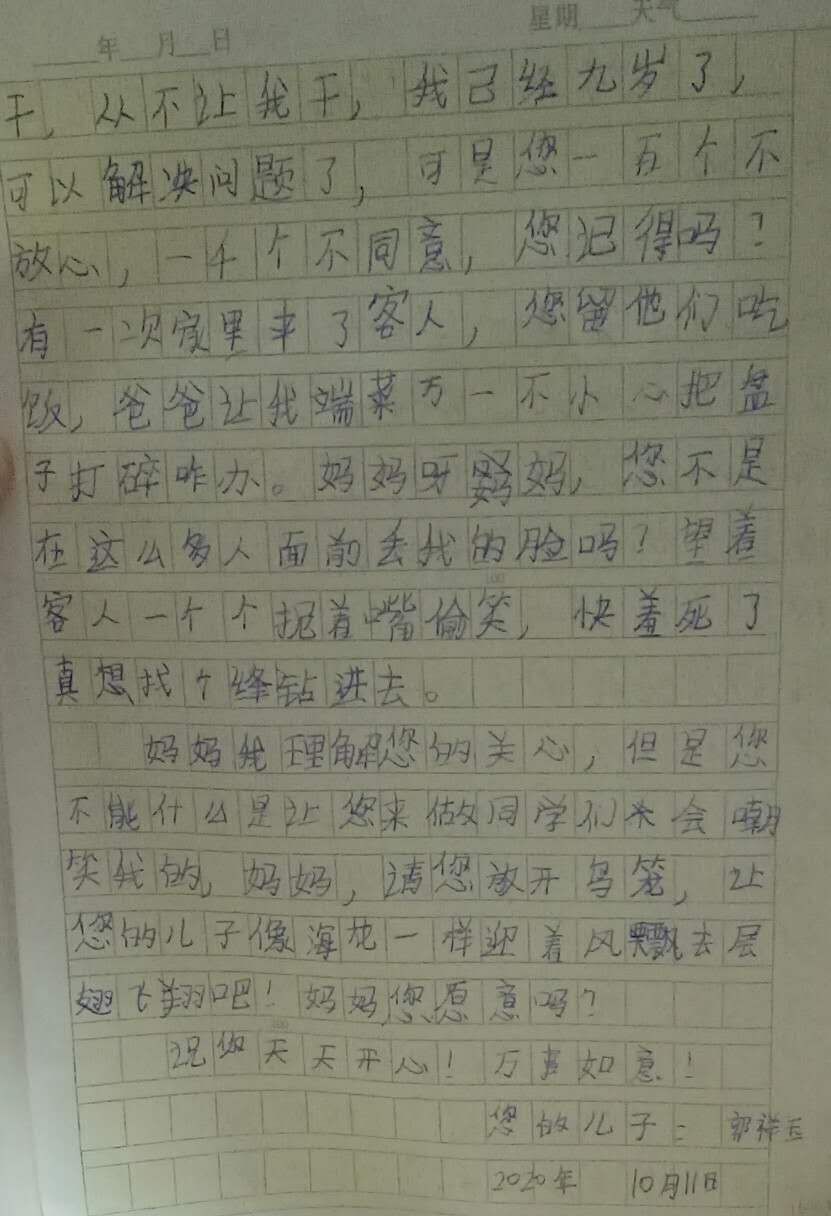 年 月 日 星期 天气
干，从不让我干，我己经九岁了，
可以解决问题了，可是您一百个不
放心，一千个不同意，您记得吗？
有一次家里来了客人，您留他们吃
饭，爸爸让我端菜万一不小心把盘
子打碎咋办。妈妈呀妈妈，您不是
在这么多人面前丢我的脸吗？望着
客人一个个捂着嘴偷笑，快羞死了
真想找个缝钻进去。
妈妈我理解您的关心，但是您
不能什么是让您来做同学们会嘲
笑我的，妈妈，请您放开鸟笼，让
您的儿子像海龙一样迎着风飘去层
翅飞翔吧！妈妈您愿意吗？
祝您天天开心！万事如意！
您的儿子：郭祥
2020年 10月11日